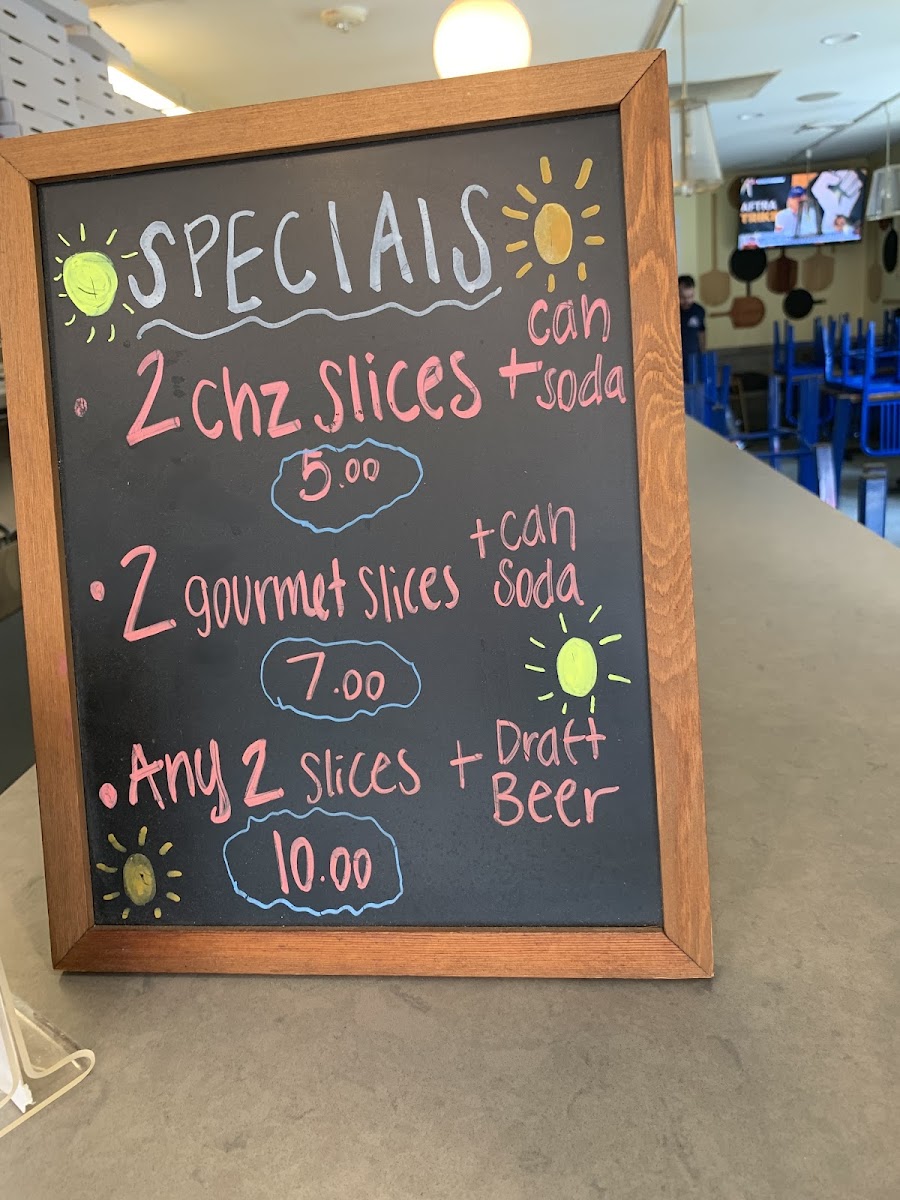 SPECIALS
• 2 chz slices + can soda
5.00
• 2 gourmet slices + can soda
7.00
• Any 2 slices + Draft Beer
10.00
AFTRA